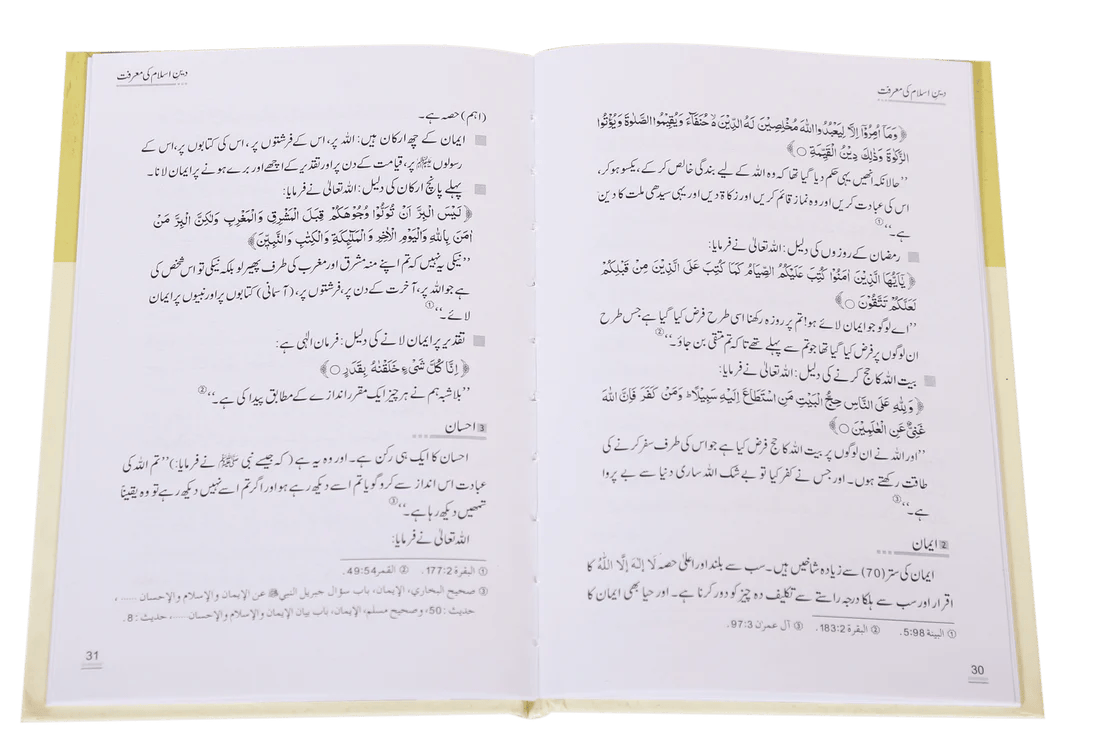 دینِ اسلام کی معرفت
﴿ وَمَآ اُمِرُوْٓا اِلَّا لِيَعْبُدُوا اللّٰهَ مُخْلِصِيْنَ لَهُ الدِّيْنَ ۙ حُنَفَآءَ وَيُقِيْمُوا الصَّلٰوةَ وَيُؤْتُوا
الزَّكٰوةَ وَذٰلِكَ دِيْنُ الْقَيِّمَةِ ○ ﴾
’’حالانکہ انھیں یہی حکم دیا گیا تھا کہ وہ اللہ کے لیے بندگی خالص کر کے، یکسو ہو کر،
اس کی عبادت کریں اور وہ نماز قائم کریں اور زکاۃ دیں اور یہی سیدھی ملت کا دین
ہے۔‘‘①
رمضان کے روزوں کی دلیل: اللہ تعالیٰ نے فرمایا:
﴿ يٰٓاَيُّهَا الَّذِيْنَ اٰمَنُوْا كُتِبَ عَلَيْكُمُ الصِّيَامُ كَمَا كُتِبَ عَلَى الَّذِيْنَ مِنْ قَبْلِكُمْ
لَعَلَّكُمْ تَتَّقُوْنَ ○ ﴾
’’اے لوگو جو ایمان لائے ہو! تم پر روزہ رکھنا اسی طرح فرض کیا گیا ہے جس طرح
ان لوگوں پر فرض کیا گیا تھا جو تم سے پہلے تھے تاکہ تم متقی بن جاؤ۔‘‘②
بیت اللہ کا حج کرنے کی دلیل: اللہ تعالیٰ نے فرمایا:
﴿ وَلِلّٰهِ عَلَى النَّاسِ حِجُّ الْبَيْتِ مَنِ اسْتَطَاعَ اِلَيْهِ سَبِيْلًا ؕ وَمَنْ كَفَرَ فَاِنَّ اللّٰهَ
غَنِيٌّ عَنِ الْعٰلَمِيْنَ ○ ﴾
’’اور اللہ نے ان لوگوں پر بیت اللہ کا حج فرض کیا ہے جو اس کی طرف سفر کرنے کی
طاقت رکھتے ہوں۔ اور جس نے کفر کیا تو بے شک اللہ ساری دنیا سے بے پروا
ہے۔‘‘③
2 ایمان
ایمان کی ستر (70) سے زیادہ شاخیں ہیں۔ سب سے بلند اور اعلیٰ حصہ لَا اِلٰهَ اِلَّا اللّٰهُ کا
اقرار اور سب سے ہلکا درجہ راستے سے تکلیف دہ چیز کو دور کرنا ہے۔ اور حیا بھی ایمان کا
① البینة 5:98. ② البقرة 183:2. ③ آل عمرٰن 97:3.
30
دینِ اسلام کی معرفت
(اہم) حصہ ہے۔
ایمان کے چھ ارکان ہیں: اللہ پر، اس کے فرشتوں پر، اس کی کتابوں پر، اس کے
رسولوں ﷺ پر، قیامت کے دن پر اور تقدیر کے اچھے اور برے ہونے پر ایمان لانا۔
پہلے پانچ ارکان کی دلیل: اللہ تعالیٰ نے فرمایا:
﴿ لَيْسَ الْبِرَّ اَنْ تُوَلُّوْا وُجُوْهَكُمْ قِبَلَ الْمَشْرِقِ وَالْمَغْرِبِ وَلٰكِنَّ الْبِرَّ مَنْ
اٰمَنَ بِاللّٰهِ وَالْيَوْمِ الْاٰخِرِ وَالْمَلٰٓئِكَةِ وَالْكِتٰبِ وَالنَّبِيّٖنَ ﴾
’’نیکی یہ نہیں کہ تم اپنے منہ مشرق اور مغرب کی طرف پھیر لو بلکہ نیکی تو اس شخص کی
ہے جو اللہ پر، آخرت کے دن پر، فرشتوں پر، (آسمانی) کتابوں پر اور نبیوں پر ایمان
لائے۔‘‘①
تقدیر پر ایمان لانے کی دلیل: فرمان الٰہی ہے:
﴿ اِنَّا كُلَّ شَيْءٍ خَلَقْنٰهُ بِقَدَرٍ ○ ﴾
’’بلاشبہ ہم نے ہر چیز ایک مقرر اندازے کے مطابق پیدا کی ہے۔‘‘②
3 احسان
احسان کا ایک ہی رکن ہے۔ اور وہ یہ ہے (کہ جیسے نبی ﷺ نے فرمایا:) ’’تم اللہ کی
عبادت اس انداز سے کرو گویا تم اسے دیکھ رہے ہو اور اگر تم اسے نہیں دیکھ رہے تو وہ یقیناً
تمھیں دیکھ رہا ہے۔‘‘③
اللہ تعالیٰ نے فرمایا:
① البقرة 177:2. ② القمر 49:54.
③ صحيح البخاري، الإيمان، باب سؤال جبريل النبي ﷺ عن الإيمان والإسلام والإحسان .....،
حديث: 50، وصحيح مسلم، الإيمان، باب بيان الإيمان والإسلام والإحسان .....، حديث: 8.
31